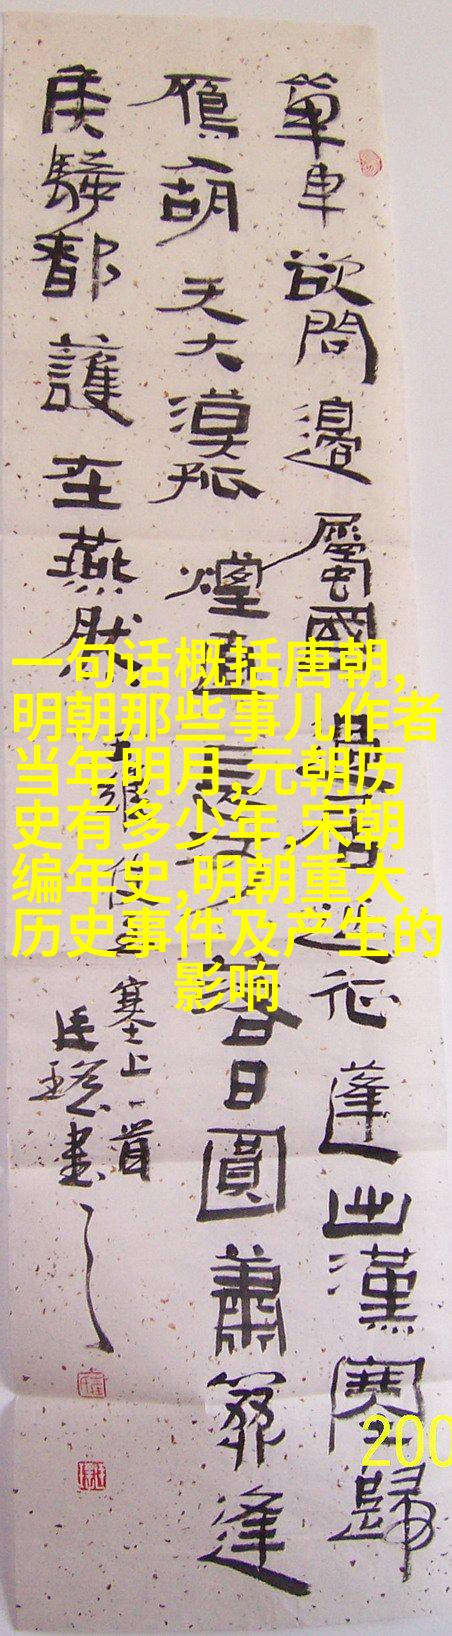 單車欲問邊屬國過居延征蓬出漢塞歸
鴈入胡天大漠孤煙直長河落日圓蕭關逢
侯騎都護在燕然
王維使至
塞上一首
書
一句话概括唐朝,
明朝那些事儿作者
当年明月,元朝历
史有多少年,宋朝
编年史,明朝重大
历史事件及产生的
影响
200